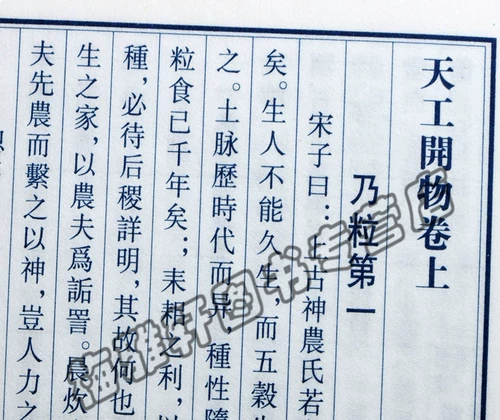 天工開物卷上
乃粒第一
宋子曰：上古神農氏若
矣。生人不能久生，而五穀生
之。土脉歷時代而异，種性隨
粒食已千年矣；耒耜之利，以
種，必待后稷詳明，其故何也
生之家，以農夫爲詬詈。晨炊
夫先農而繫之以神，豈人力之